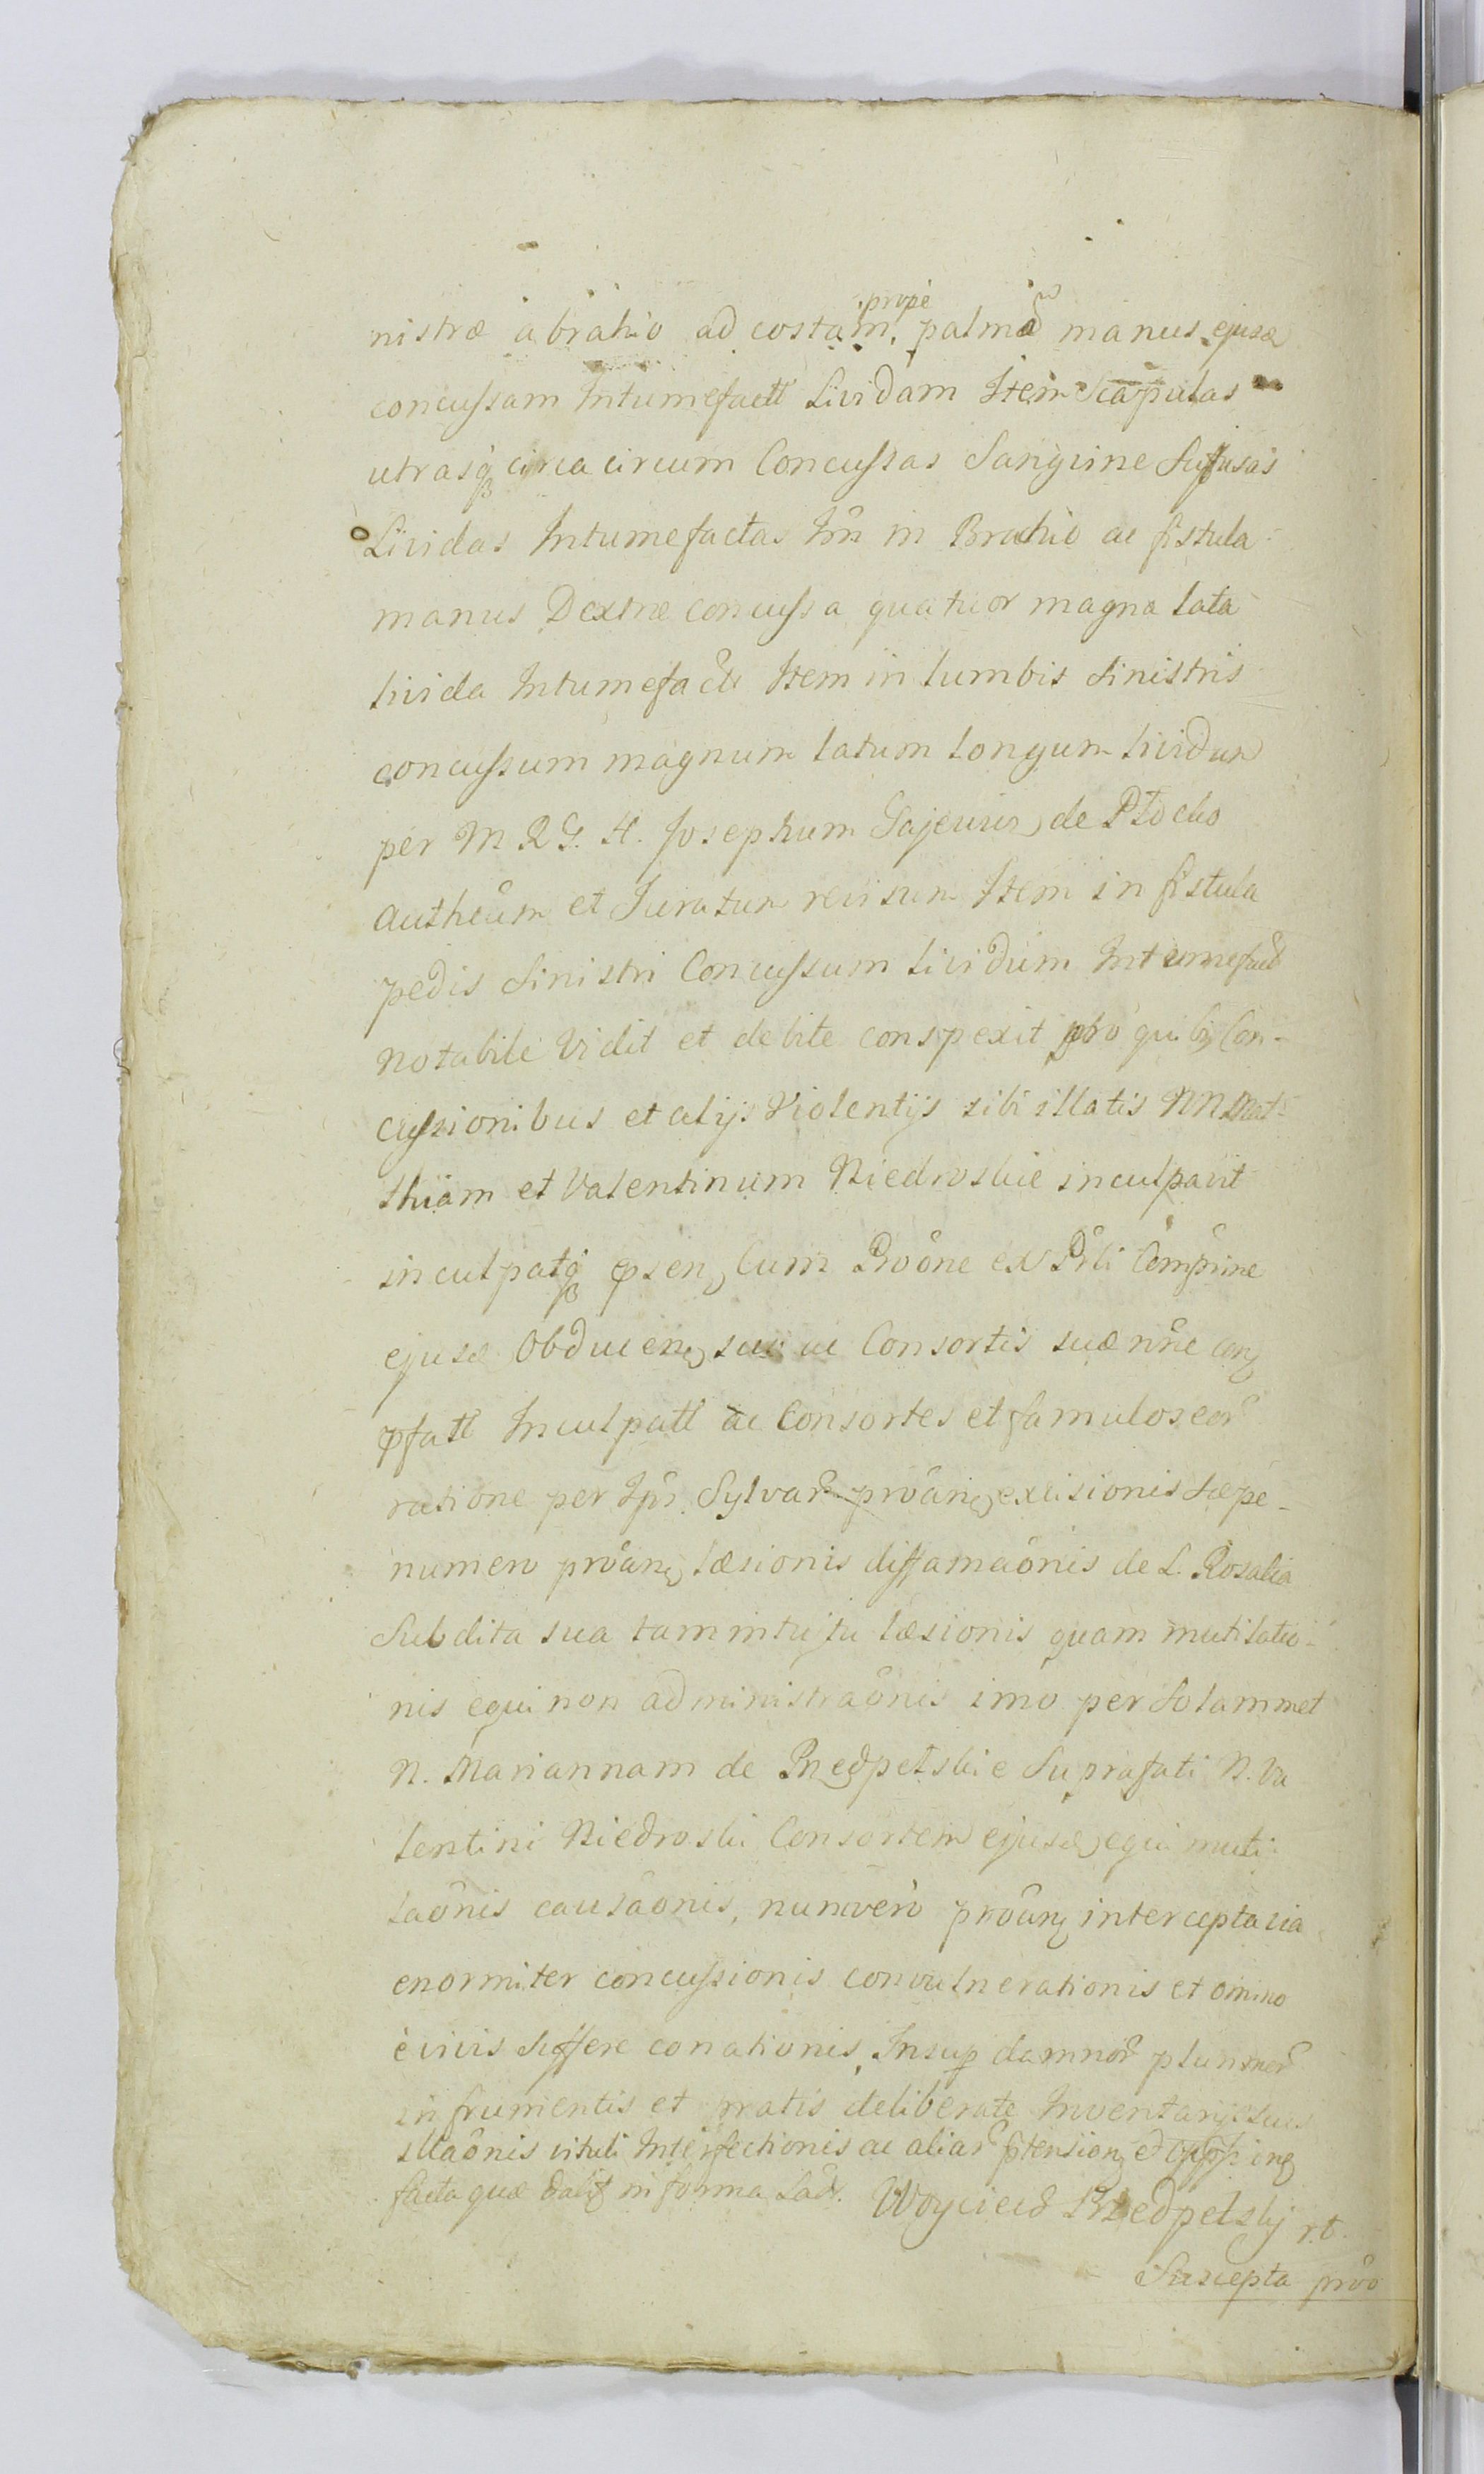 prope
nistræ a brahio ad costam, palmã manus ejusd
concussam Intumefactt Lividam Item Scapulas
utrasq circa circum Concussas Sangvine Sufusas
Lividas Intumefactas Itm̃ in Brachio ac fistula
manus Dextræ concussa quatuor magna lata
livida Intumefacta Item in lumbis Sinistris
concussum magnum latum longum lividum
per M. R. G. H. Josephum de Płocko
Autheũm et Juratum revisum Item in fistula
pedis Sinistri Concussum lividum Intumefact
notabile Vidit et debite conspexit pro quibg Con-
cussionibus et alijs Violentijs sibi illatis NN. Mat-
thiam et Valentinum Niedroskie inculpavit
inculpatq pṡen Cum Proône ex Prli Comprine
ejusd Obducen sui ac Consortis suæ nrne con
pfatt Inculpatt ac Consortes et famulos eor̃
ratione per Ips Sylvar̃ prôan excisionis Sæpe-
numero prôan læsionis diffamaônis de L. Rosalia
Subdita sua tam intuitu læsionis quam mutilatio-
nis equi non administraônis imo per Solammet
N. Mariannam de Przedpełskie Suprafati N. Va
lentini Niedroski Consortem ejusd equi muti-
laônis causaônis, nunc vero prôan intercepta via
enormiter concussionis convulnerationis et omnino
è vivis differe conationis, Insup damnor̃ plurimor̃
in frumentis et pratis deliberate Inventarijs suis
illaônis vituli Interfectionis ac aliar̃ ptension
facta quæ in forma Lad. Woyciech Przedpełskj rt.
Suscepta prôo